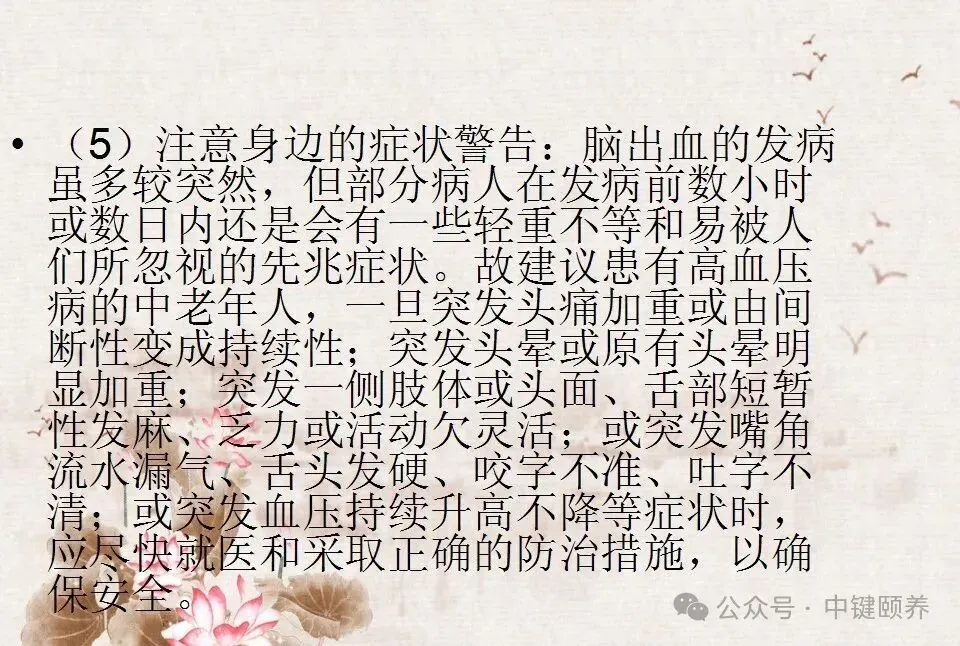 • （5）注意身边的症状警告：脑出血的发病
虽多较突然，但部分病人在发病前数小时
或数日内还是会有一些轻重不等和易被人
们所忽视的先兆症状。故建议患有高血压
病的中老年人，一旦突发头痛加重或由间
断性变成持续性；突发头晕或原有头晕明
显加重；突发一侧肢体或头面、舌部短暂
性发麻、乏力或活动欠灵活；或突发嘴角
流水漏气、舌头发硬、咬字不准、吐字不
清；或突发血压持续升高不降等症状时，
应尽快就医和采取正确的防治措施，以确
保安全。
公众号·中键颐养